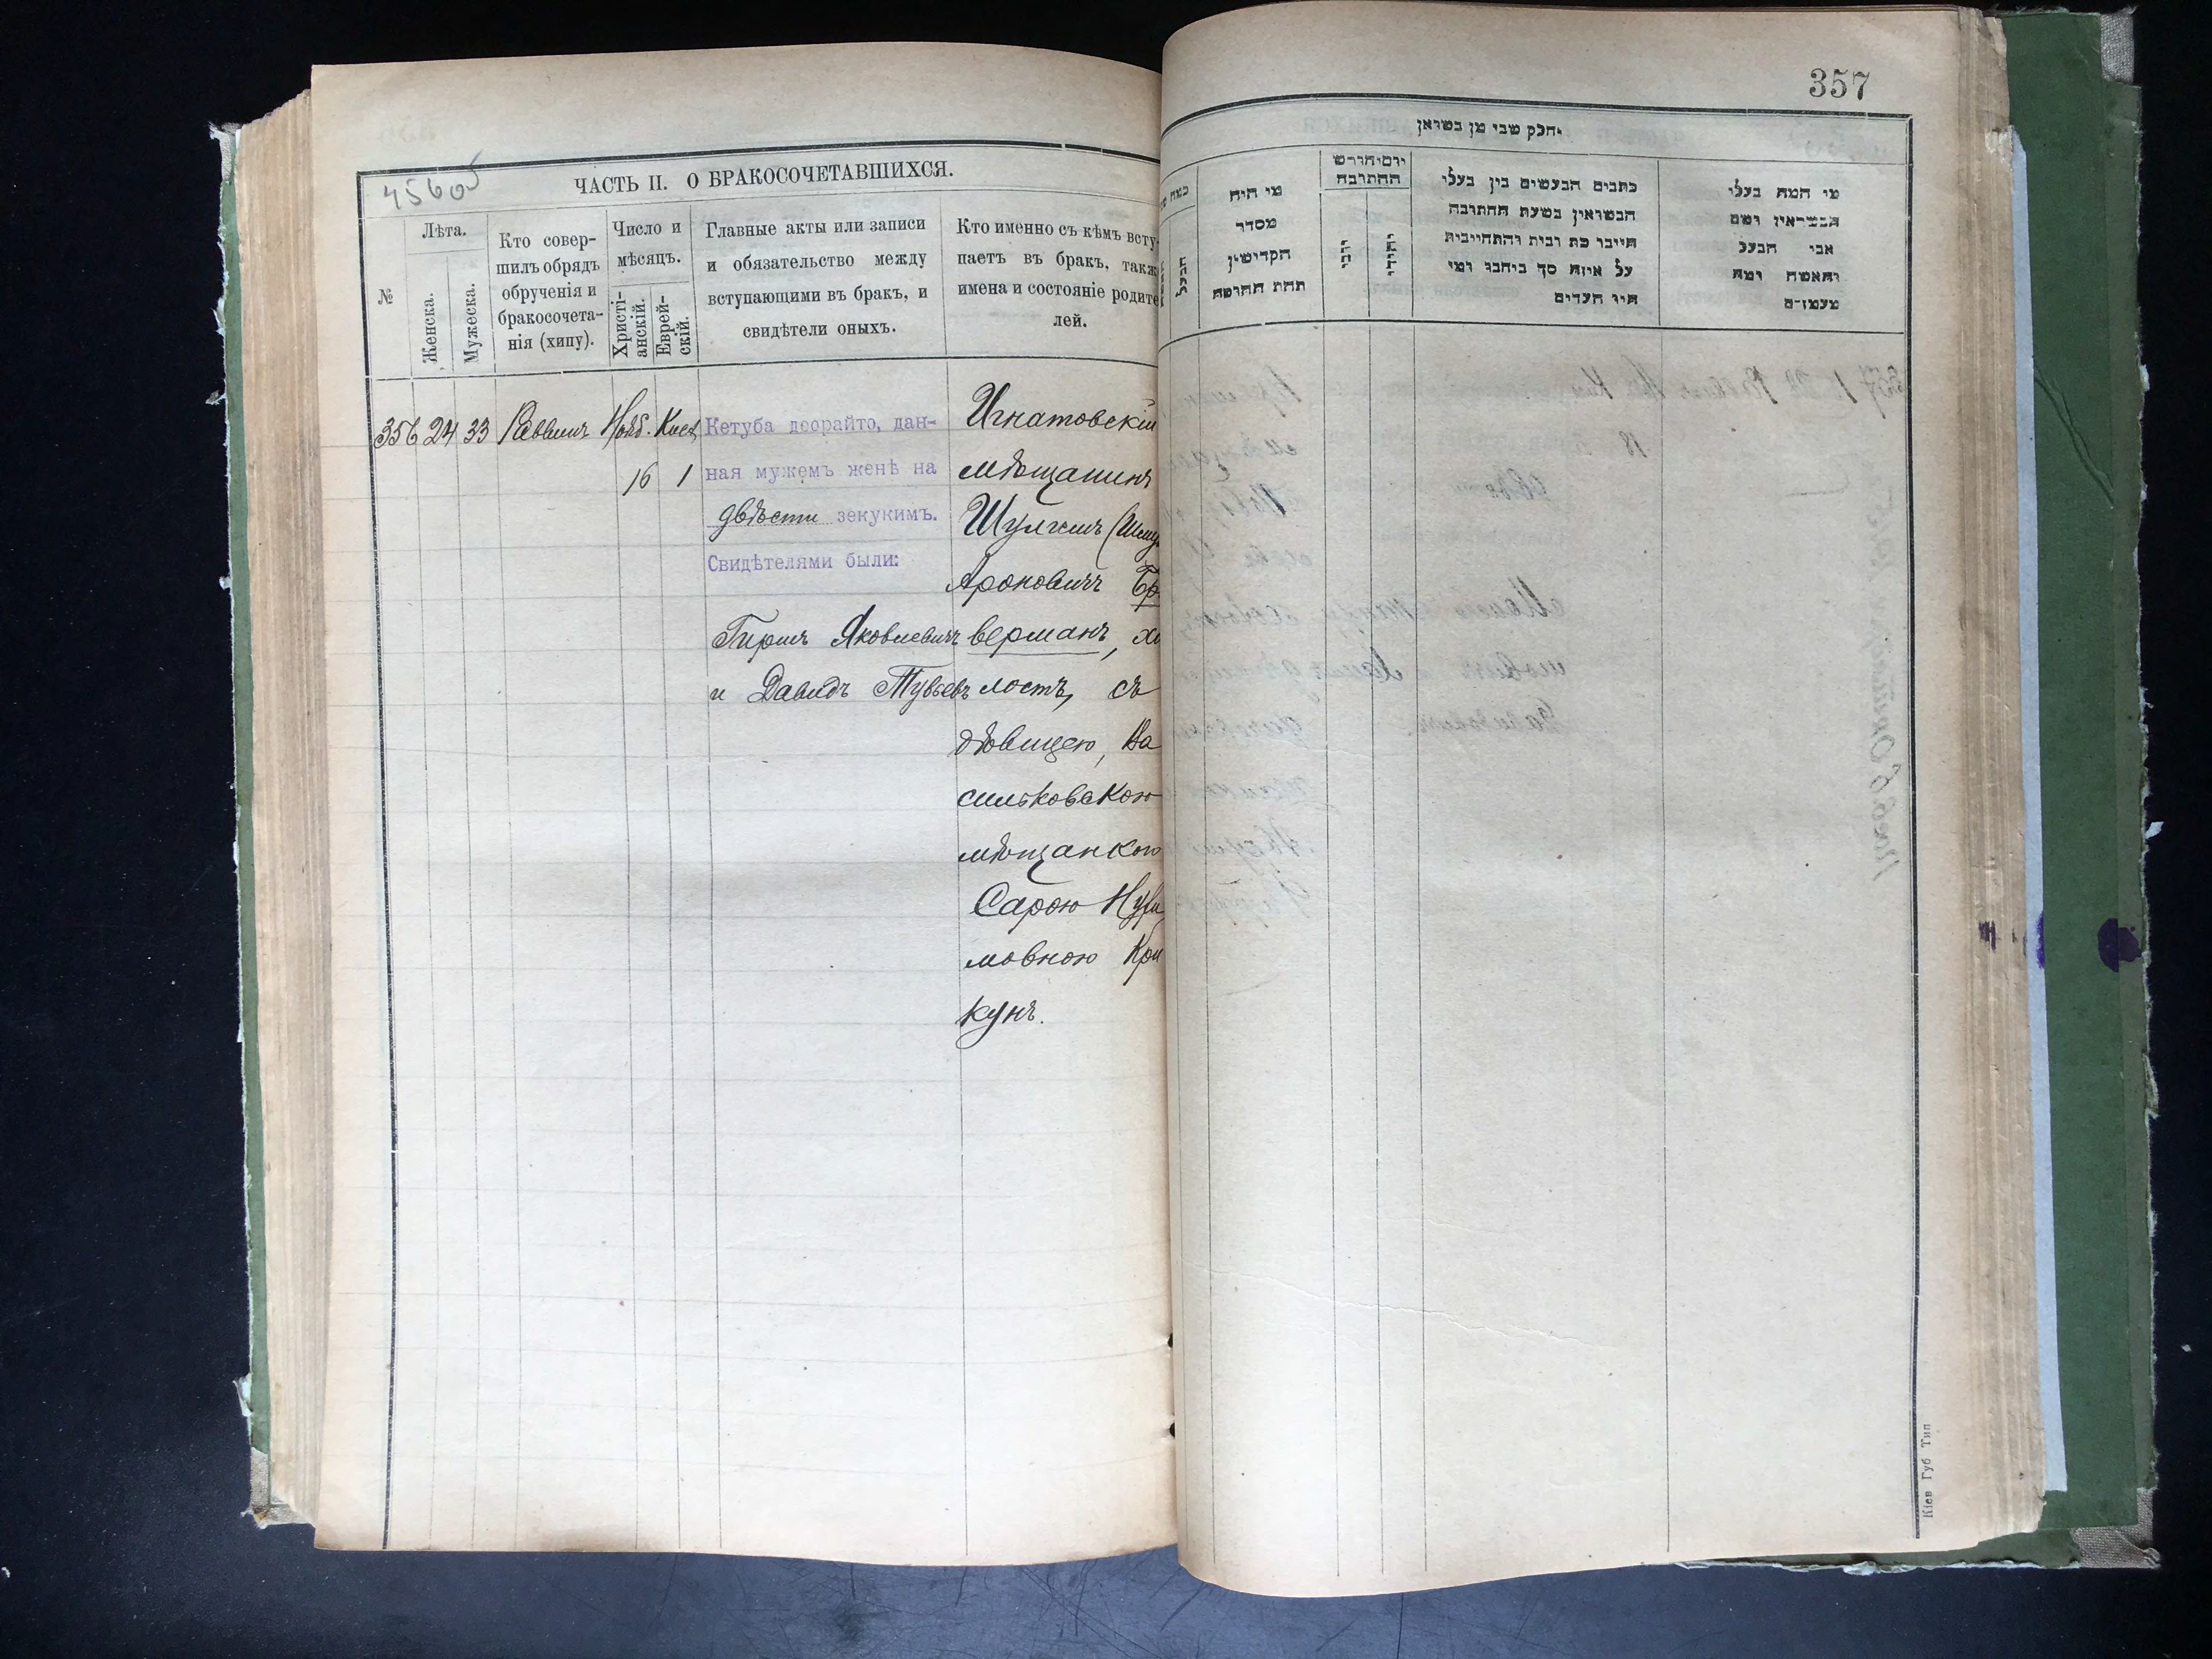 45605
ЧАСТЬ II. О БРАКОСОЧЕТАВШИХСЯ.
№
Лѣта.
Женска.
Мужеска.
Кто совер-
шилъ обрядъ
обрученія и
бракосочета-
нія (хипу).
Число и
мѣсяцъ.
Христі-
анскій.
Еврей-
скій.
Главные акты или записи
и обязательство между
вступающими въ бракъ, и
свидѣтели оныхъ.
Кто именно съ кѣмъ всту-
паетъ въ бракъ, также
имена и состояніе родите
лей.
356 24 33 Раввинъ Нояб. Кисл.
16 1
Кетуба деорайто, дан-
ная мужемъ женѣ на
двѣсти зекукимъ.
Свидѣтелями были:
Гиршъ Яковлевичъ
и Давидъ Тувьевъ
Игнатовскій
мѣщанинъ
Шулимъ (Шму
Ароновичъ Бр
верманъ, хо
лостъ, съ
дѣвицею, Ва
сильковскою
мѣщанкою
Сарою Нухи
мовною Кри
кунъ.
357
יחלק שבי מן בשואן
מי היה
מסדר
הקדישין
תחת החושה
הבעל
יום וחודש
החתובה
כתבים הבעשים בין בעלי
הבשואין בשעת החתובה
חייבו כת ובית והתחייבות
על איזה סך ביחבו ומי
היו העדים
מי המה בעלי
אבי הבעל
והאשה ומה
מעמדם
Кіев Губ Тип